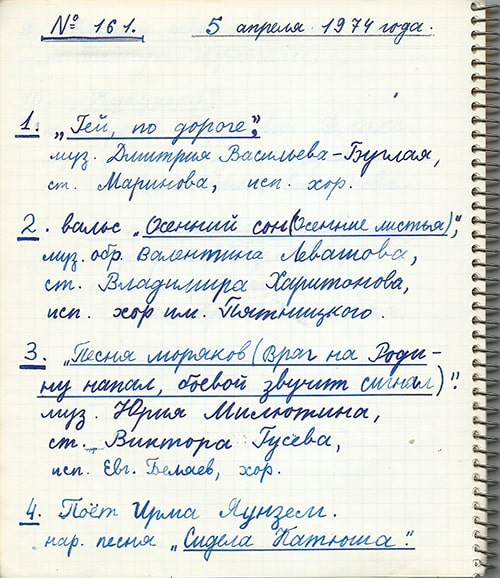 № 161. 5 апреля 1974 года.
1. „Гей, по дороге",
муз. Дмитрия Васильева-Буглая,
ст. Маринова, исп. хор.
2. вальс „Осенний сон (Осенние листья)",
муз. обр. Валентина Левашова,
ст. Владимира Харитонова,
исп. хор им. Пятницкого.
3. „Песня моряков (Враг на Роди-
ну напал, боевой звучит сигнал)".
муз. Юрия Милютина,
ст. Виктора Гусева,
исп. Евг. Беляев, хор.
4. Поёт Ирма Яунзем.
нар. песня „Сидела Катюша".